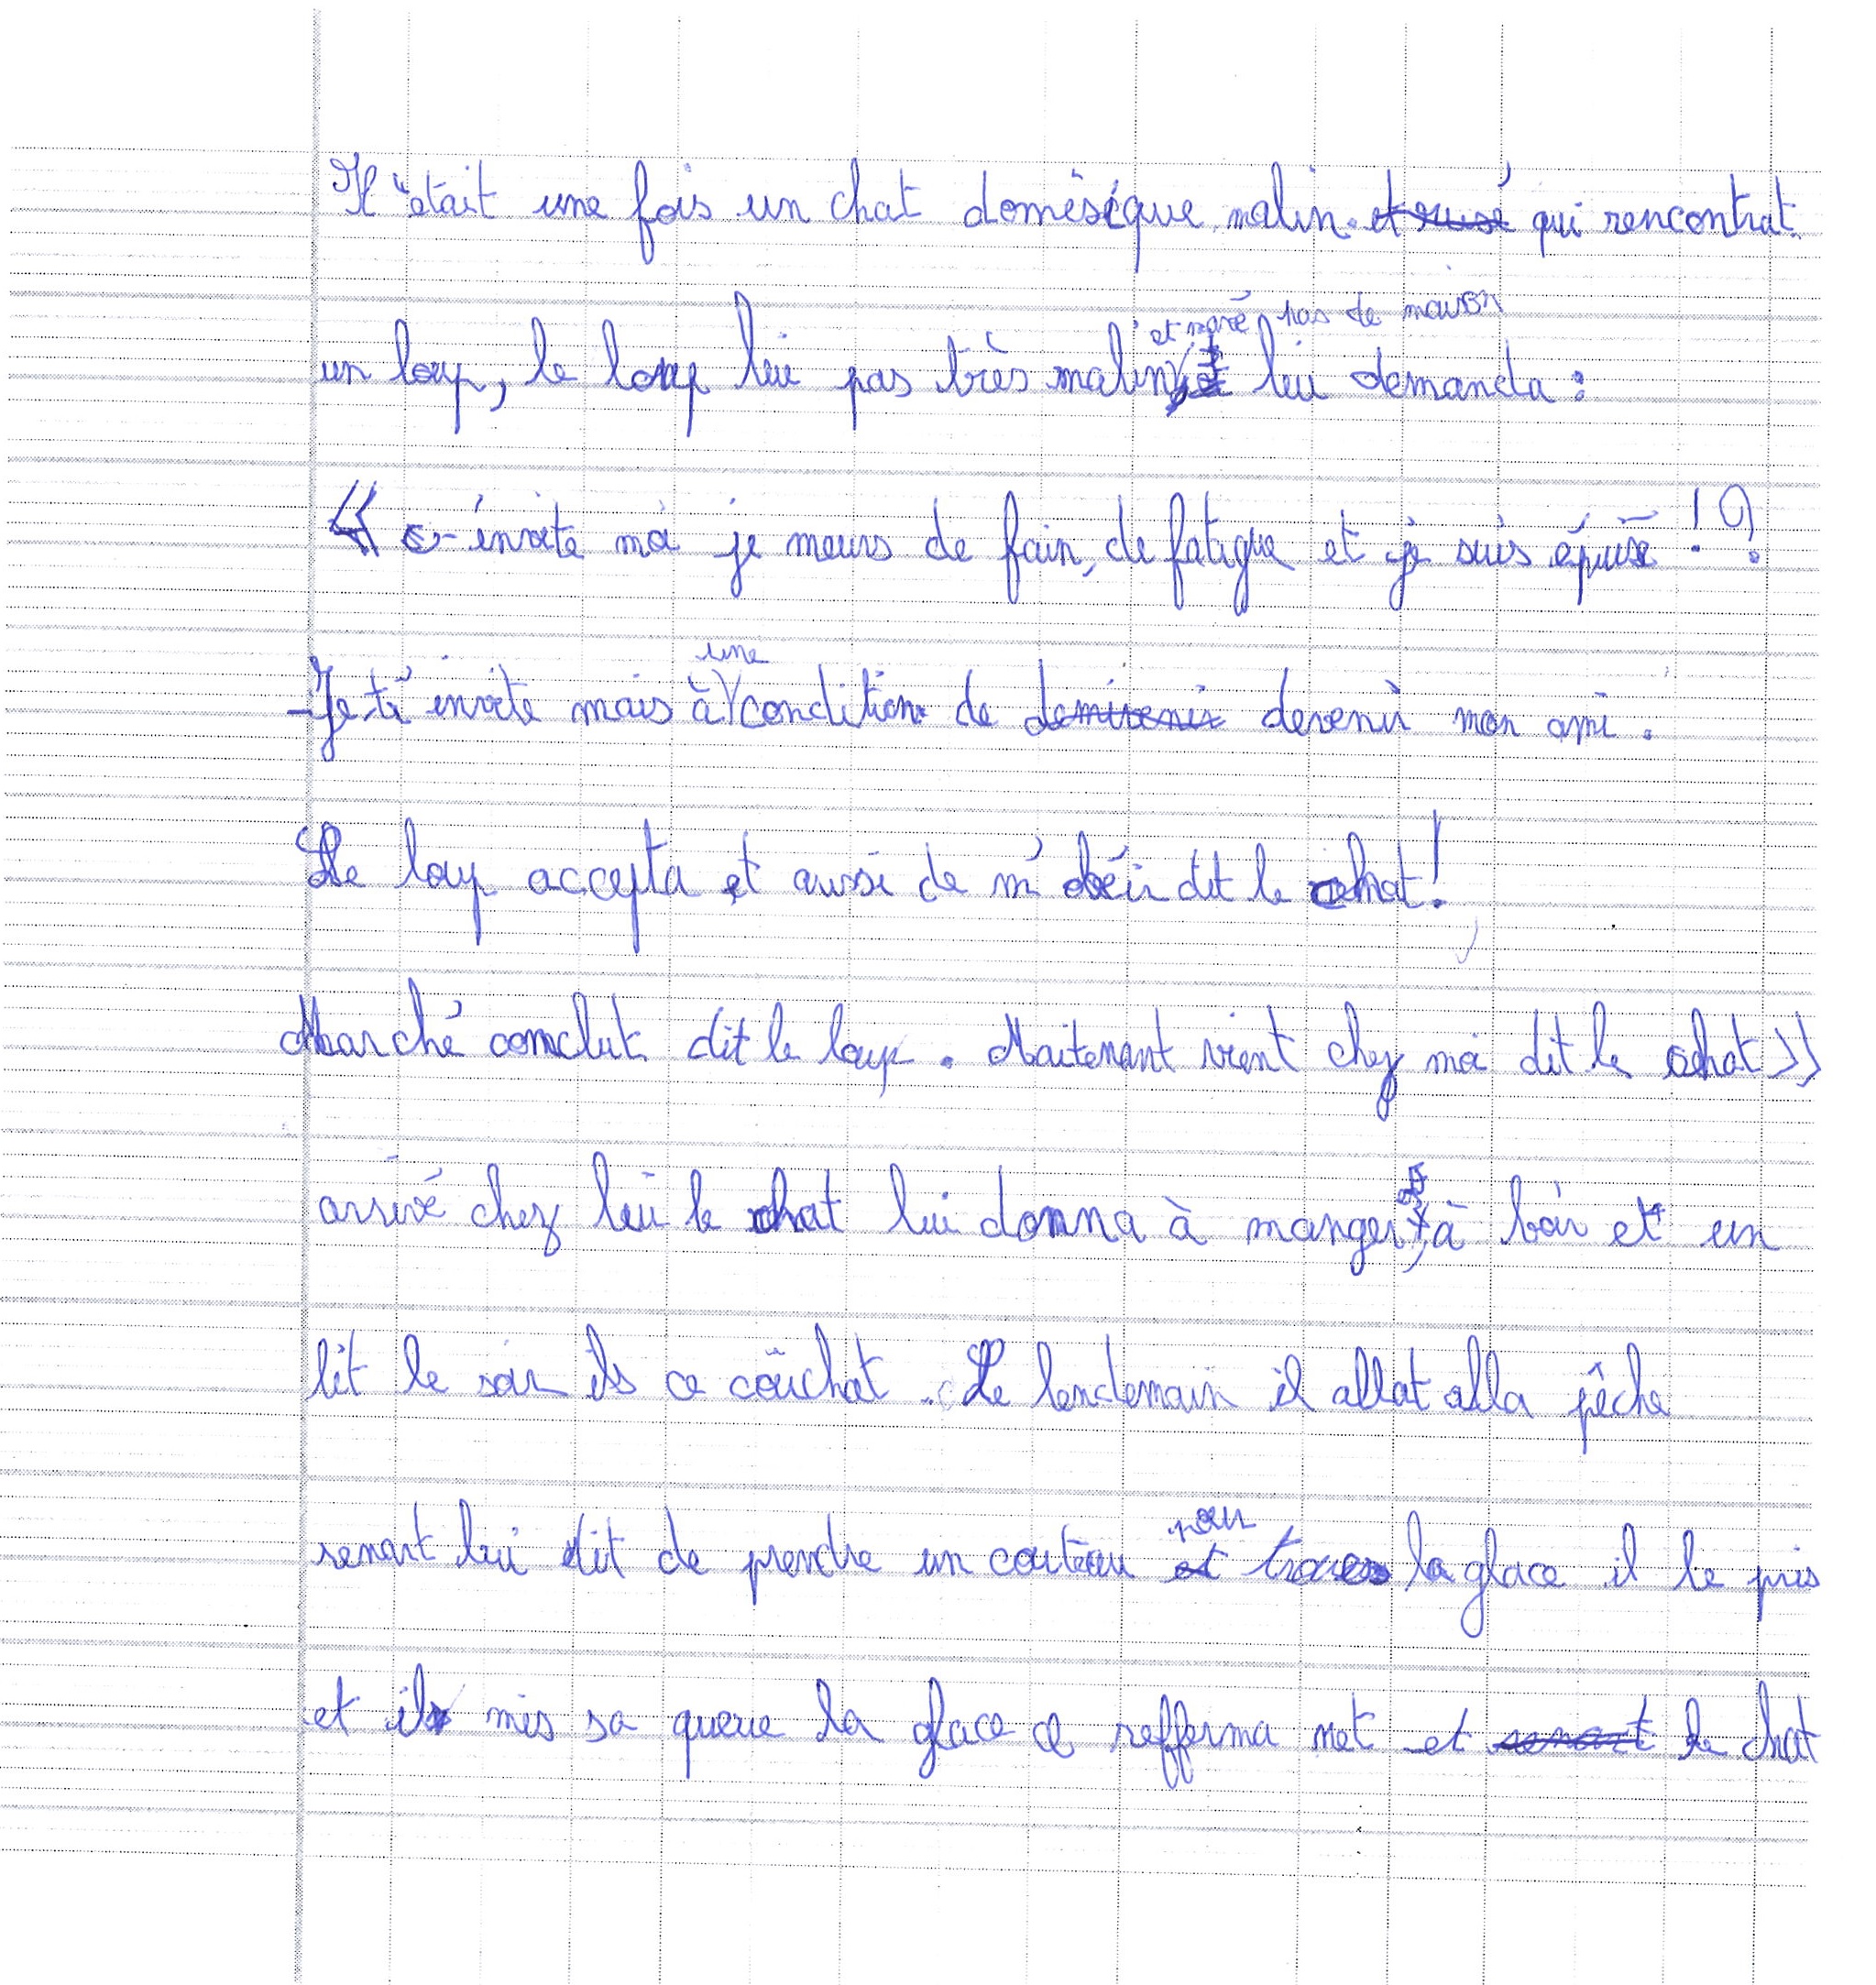 Il était une fois un chat domèsique malin et rusé qui rencontrat
et pas de maison
un loup, le loup lui pas très malin lui demanda :
« invite moi je meurs de faim, de fatigue et je suis épuisé ! ?
une
- Je t'invite mais à condition de devenir mon ami .
Le loup accepta et aussi de m'obéir dit le chat !
Marché conclut dit le loup . Maitenant vient chez moi dit le chat »
arrivé chez lui le chat lui donna à manger, à boir et un
lit le soir ils ce couchat . Le lendemain il allat alla pêche
pour
renart lui dit de prendre un couteau et trouer la glace il le pris
et il mis sa queue la glace ce refferma net et renart le chat